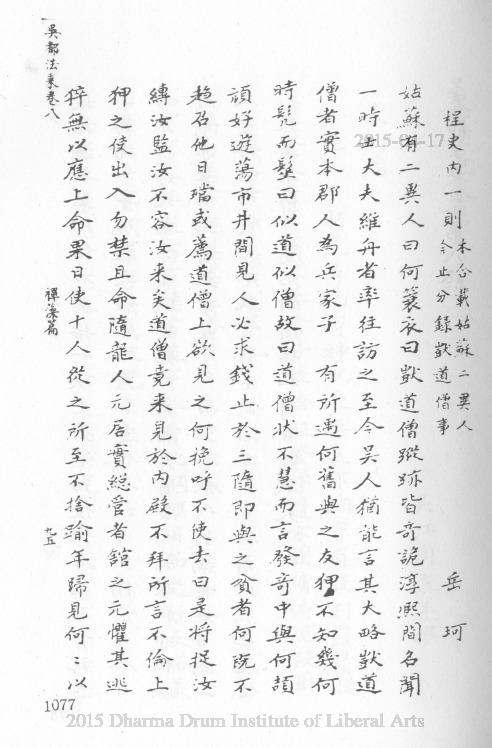 桯史內一則
本合載姑蘇二異人
今止分錄獃道僧事
岳珂
姑蘇有二異人曰何蓑衣曰獃道僧蹤跡皆奇詭淳熙間名聞
一時士大夫維舟者率往訪之至今吳人猶能言其大略獃道
僧者實本郡人為兵家子 有所遇何舊與之友狎不知幾何
時髡而髽曰似道似僧故曰道僧狀不慧而言發奇中與何頡
頏好遊蕩市井間見人必求錢止於三隨即與之貧者何既不
趍召他日璫或薦道僧上欲見之何挽呼不使去曰是將捉汝
縛汝監汝不容汝來矣道僧竟來見於內殿不拜所言不倫上
狎之使出入勿禁且命隨龍人元居實總管者館之元懼其逃
猝無以應上命果日使十人從之所至不捨踰年歸見何〻以
吳都法乘卷八
禪藻篇
九五
1077
2015-04-17
2015 Dharma Drum Institute of Liberal Arts